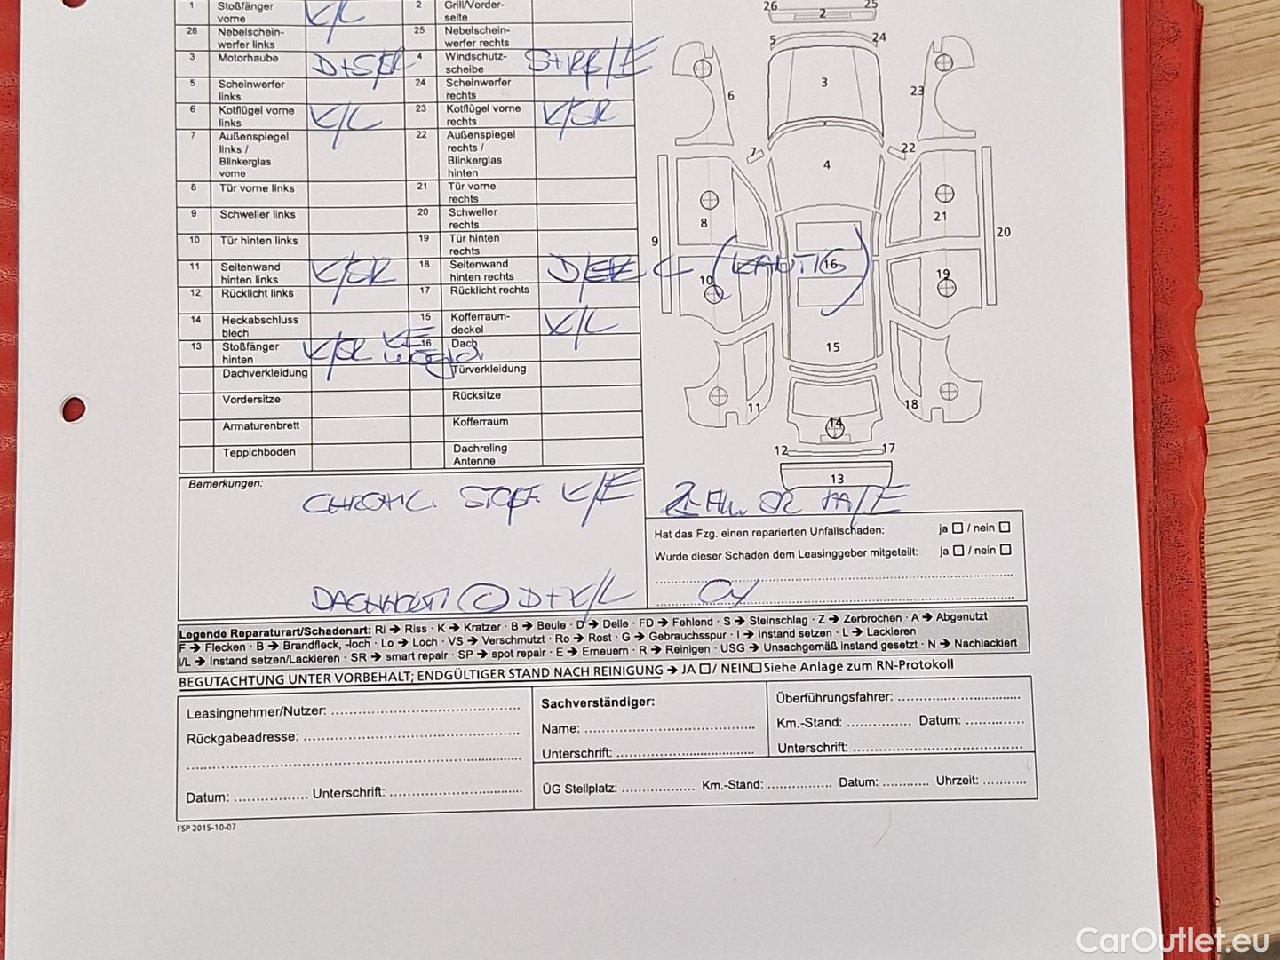 1 Stoßfänger vorne K/L 2 Grill/Vorderseite
26 Nebelscheinwerfer links 25 Nebelscheinwerfer rechts
3 Motorhaube D+S/ 4 Windschutzscheibe
5 Scheinwerfer links 24 Scheinwerfer rechts
6 Kotflügel vorne links K/L 23 Kotflügel vorne rechts K/SR
7 Außenspiegel links / Blinkerglas vorne 22 Außenspiegel rechts / Blinkerglas hinten
8 Tür vorne links 21 Tür vorne rechts
9 Schweller links 20 Schweller rechts
10 Tür hinten links 19 Tür hinten rechts
11 Seitenwand hinten links K/SR 18 Seitenwand hinten rechts
12 Rücklicht links 17 Rücklicht rechts
14 Heckabschluss blech 15 Kofferraumdeckel K/L
13 Stoßfänger hinten K/SR 16 Dach
Dachverkleidung Türverkleidung
Vordersitze Rücksitze
Armaturenbrett Kofferraum
Teppichboden Dachreling Antenne
26 2 25
5 24
3
6 23
7 22
4
8 21
9 20
10 16 19
15
11 18
14
12 17
13
Bemerkungen:
K/E
Hat das Fzg. einen reparierten Unfallschaden: ja / nein
Wurde dieser Schaden dem Leasinggeber mitgeteilt: ja / nein
D+K/L
Legende Reparaturart/Schadenart: Ri → Riss · K → Kratzer · B → Beule · D → Delle · FD → Fehlend · S → Steinschlag · Z → Zerbrochen · A → Abgenutzt
F → Flecken · B → Brandfleck, -loch · Lo → Loch · VS → Verschmutzt · Ro → Rost · G → Gebrauchsspur · I → Instand setzen · L → Lackieren
I/L → Instand setzen/Lackieren · SR → smart repair · SP → spot repair · E → Erneuern · R → Reinigen · USG → Unsachgemäß instand gesetzt · N → Nachlackiert
BEGUTACHTUNG UNTER VORBEHALT; ENDGÜLTIGER STAND NACH REINIGUNG → JA / NEIN Siehe Anlage zum RN-Protokoll
Leasingnehmer/Nutzer:
Rückgabeadresse:
Datum: Unterschrift:
Sachverständiger:
Name:
Unterschrift:
Überführungsfahrer:
Km.-Stand: Datum:
Unterschrift:
ÜG Stellplatz: Km.-Stand: Datum: Uhrzeit:
FSP 2015-10-07
CarOutlet.eu